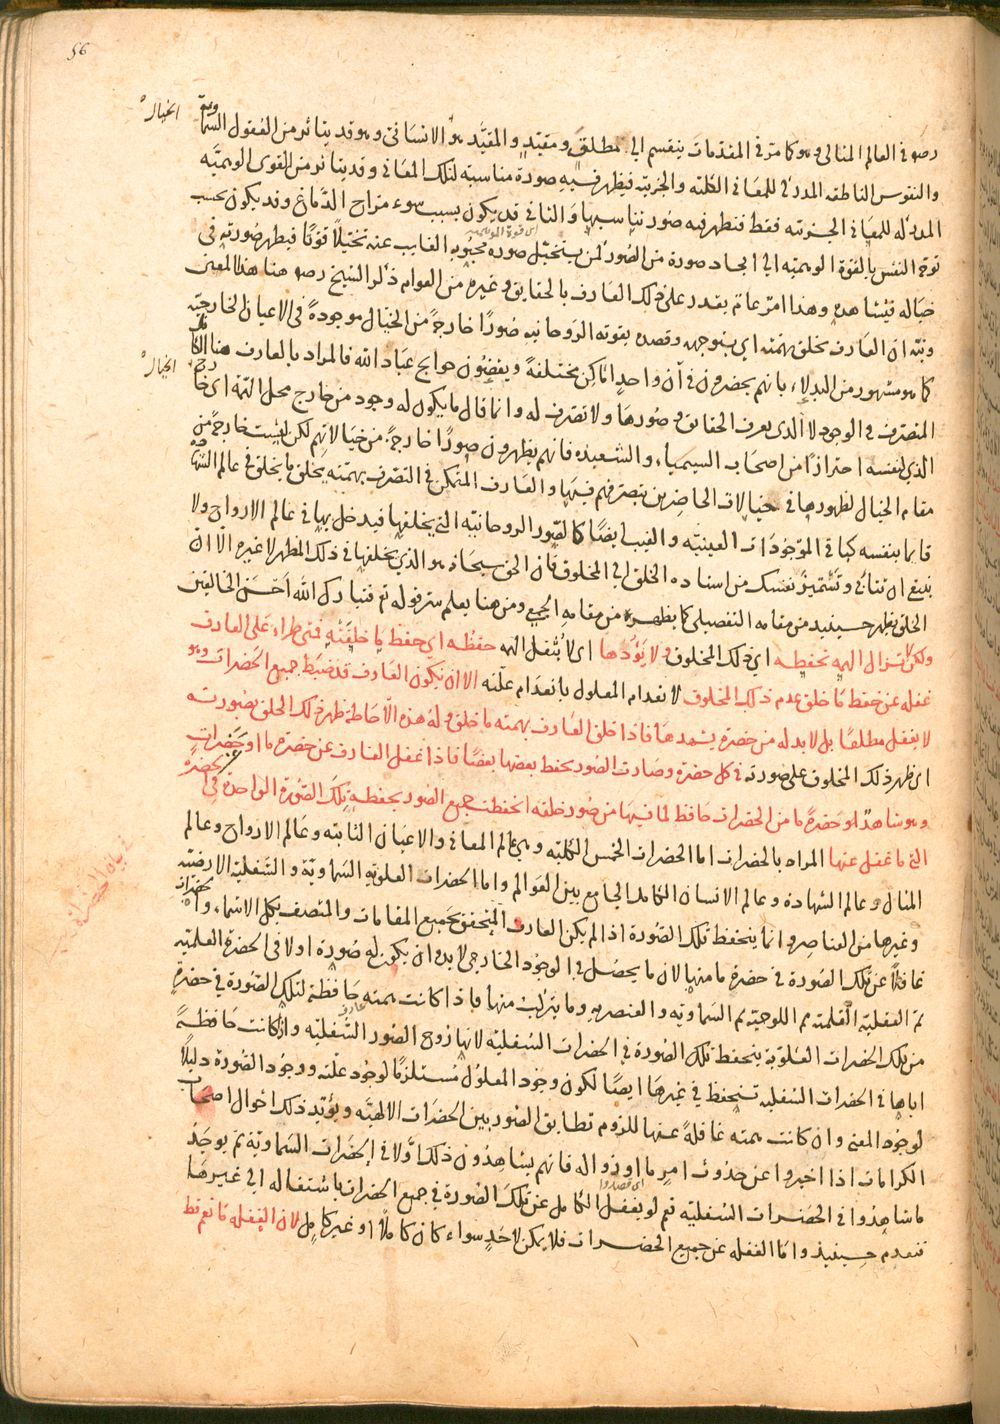 56
الخيال
رصه في العالم المثالى وهو كما مر فى المقدمات ينقسم الى مطلق ومقيد والمقيد هو الانسانى وهو قد يتاثر من العقول السماوية
والنفوس الناطقه المدركه للمعانى الكليه والجزئيه فيظهر فيه صورة مناسبته لتلك المعانى وقد يتاثر من القوى الوهميه
المدركه للمعانى الجزئيه فقط فتظهر فيه صور تناسبها والثانى قد يكون بسبب سوء مزاج الدماغ وقد يكون بحسب
توجه النفس بالقوة الوهميه الى ايجاد صورة من الصور كمن يتخيل صورة محبوبه الغايب عنه تخيلا قويا فيظهر صورته فى
خياله فيشاهده وهذا امر عام يقدر على ذلك العارف بالحقايق وغيره من العوام ذكر الشيخ رصه هنا هذا المعنى
ونبه ان العارف يخلق بهمته اى بتوجهه وقصده بقوته الروحانيه صورا خارجة من الخيال موجودة فى الاعيان الخارجيه
كما هو مشهور من البدلاء بانهم يحضرون فى آن واحد اماكن مختلفة ويقضون حوايج عباد الله فالمراد بالعارف هنا الكامل
المتصرف فى الوجود لا الذى يعرف الحقايق وصورها ولا تصرف له وانما قال ما يكون له وجود من خارج محل الهمة اى خارج
الخيال
الذى لنفسه احترازا من اصحاب السيمياء والشعبذه فانهم يظهرون صورا خارجة من خيالاتهم لكن ليست خارجة من
مقام الخيال لظهورها فى خيالات الحاضرين بتصرفهم فيها والعارف المتمكن فى التصرف بهمته يخلق ما يخلق فى عالم الشهادة
قايما بنفسه كباقى الموجودات العينيه والغيب ايضا كالصور الروحانيه التى يخلقها فيدخل بها فى عالم الارواح ولا
ينبغى ان تتأبى وتشمئز نفسك من اسناده الخلق الى المخلوق فان الحق سبحانه هو الذى يخلقها فى ذلك المظهر لا غيره الا ان
الخلق يظهر حينئذ من مقامه التفصيلى كما يظهره من مقامه الجمعى ومن هنا يعلم سر قوله تع فتبارك الله احسن الخالقين
ولكن لا تزال الهمه تحفظه اى ذلك المخلوق ولا يؤدها اى لا يثقل الهمه حفظه اى حفظ ما خلقته فمتى طراء على العارف
غفله عن حفظ ما خلق عدم ذلك المخلوق لانعدام المعلول بانعدام علته الا ان يكون العارف قد ضبط جميع الحضرات وهو
لا يغفل مطلقا بل لا بد له من حضرة يشهدها فاذا خلق العارف بهمته ما خلق وله هذه الاحاطة ظهر ذلك الخلق بصورته
اى ظهر ذلك المخلوق على صورته فى كل حضرة وصارت الصور يحفظ بعضها بعضا فاذا غفل العارف عن حضرة ما او حضرات
وهو شاهد لحضرة ما من الحضرات حافظ لما فيها من صور خلقه انحفظت جميع الصور بحفظه تلك الصورة الواحدة فى الحضرة
التى ما غفل عنها المراد بالحضرات اما الحضرات الخمس الكليه وهى عالم المعانى والاعيان الثابته وعالم الارواح وعالم
المثال وعالم الشهاده وعالم الانسان الكامل الجامع بين العوالم واما الحضرات العلويه السماوية والسفلية الارضيه
وغيرها من العناصر وانما ينحفظ تلك الصورة اذا لم يكن العارف المتحقق بجميع المقامات والمتصف بكل الاسماء
غافلا عن تلك الصورة فى حضرة ما منها لان ما يحصل فى الوجود الخارجى لا بد وان يكون له صورة اولا فى الحضرة العلميه
ثم العقليه القلميه ثم اللوحيه ثم السماويه والعنصريه وما يتركب منها فاذا كانت همته حافظة لتلك الصورة فى حضرة
من تلك الحضرات العلوية ينحفظ تلك الصورة فى الحضرات السفليه لانها روح الصور السفليه واذا كانت حافظة
اياها فى الحضرات السفليه تنحفظ فى غيرها ايضا لكون وجود المعلول مستلزما لوجود علته ووجود الصورة دليلا
لوجود المعنى وان كانت همته غافلة عنها للزوم تطابق الصور بين الحضرات الالهيه ويؤيد ذلك احوال اصحاب
الكرامات اذا اخبروا عن حدوث امر ما او زواله فانهم يشاهدون ذلك اولا فى الحضرات السماوية ثم يوجد
ما شاهدوا فى الحضرات السفليه نعم لو يغفل الكامل عن تلك الصورة فى جميع الحضرات باشتغاله الى غيرها
فتعدم حينئذ واما الغفله عن جميع الحضرات فلا يمكن لاحد سواء كان كاملا او غير كامل لان الغفله ما تعم قط